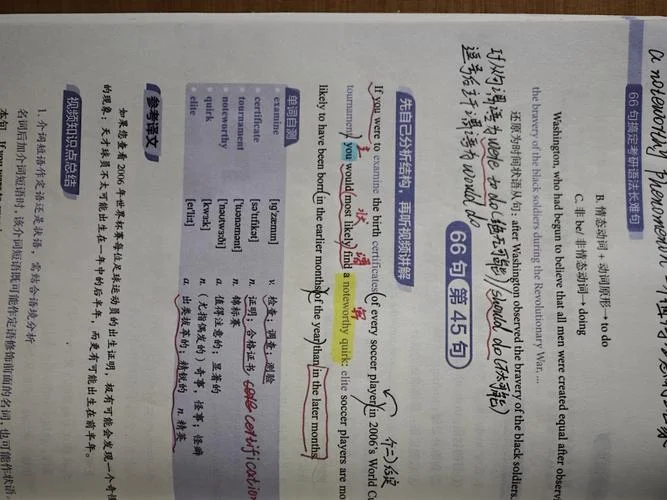 a noteworthy phenomenon
66句搞定考研语法长难句
B. 情态动词 + 动词原形→ to do
C. 非 be/ 非情态动词→ doing
Washington, who had begun to believe that all men were created equal after observ
the bravery of the black soldiers during the Revolutionary War, ...
还原为时间状语从句: after Washington observed the bravery of the black soldiers
should do
would do
66 句 第 45 句
先自己分析结构，再听视频讲解
If you were to examine the birth certificates of every soccer player in 2006's World Cu
主 状 谓 宾
tournament, you would most likely find a noteworthy quirk: elite soccer players are mo
likely to have been born in the earlier months of the year than in the later months
单词自测
examine [ɪɡˈzæmɪn] v. 检查；调查；测验
certificate [səˈtɪfɪkət] n. 证明；合格证书
tournament [ˈtʊənəmənt] n. 锦标赛
noteworthy [ˈnəʊtwɜːði] a. 值得注意的；显著的
quirk [kwɜːk] n. (尤指偶发的) 奇事，怪事；怪癖
elite [eɪˈliːt] a. 出类拔萃的；精锐的 n. 精英
参考译文
如果您查看 2006 年世界杯赛每位足球运动员的出生证明，极有可能会发现一个奇怪
的现象：天才球员不大可能出生在一年中的后半年，而更有可能出生在前半年。
视频知识点总结
1. 介词短语作定语还是状语，需结合语境分析
名词后加介词短语时，该介词短语既可能作定语修饰前面的名词，也可能作状语。